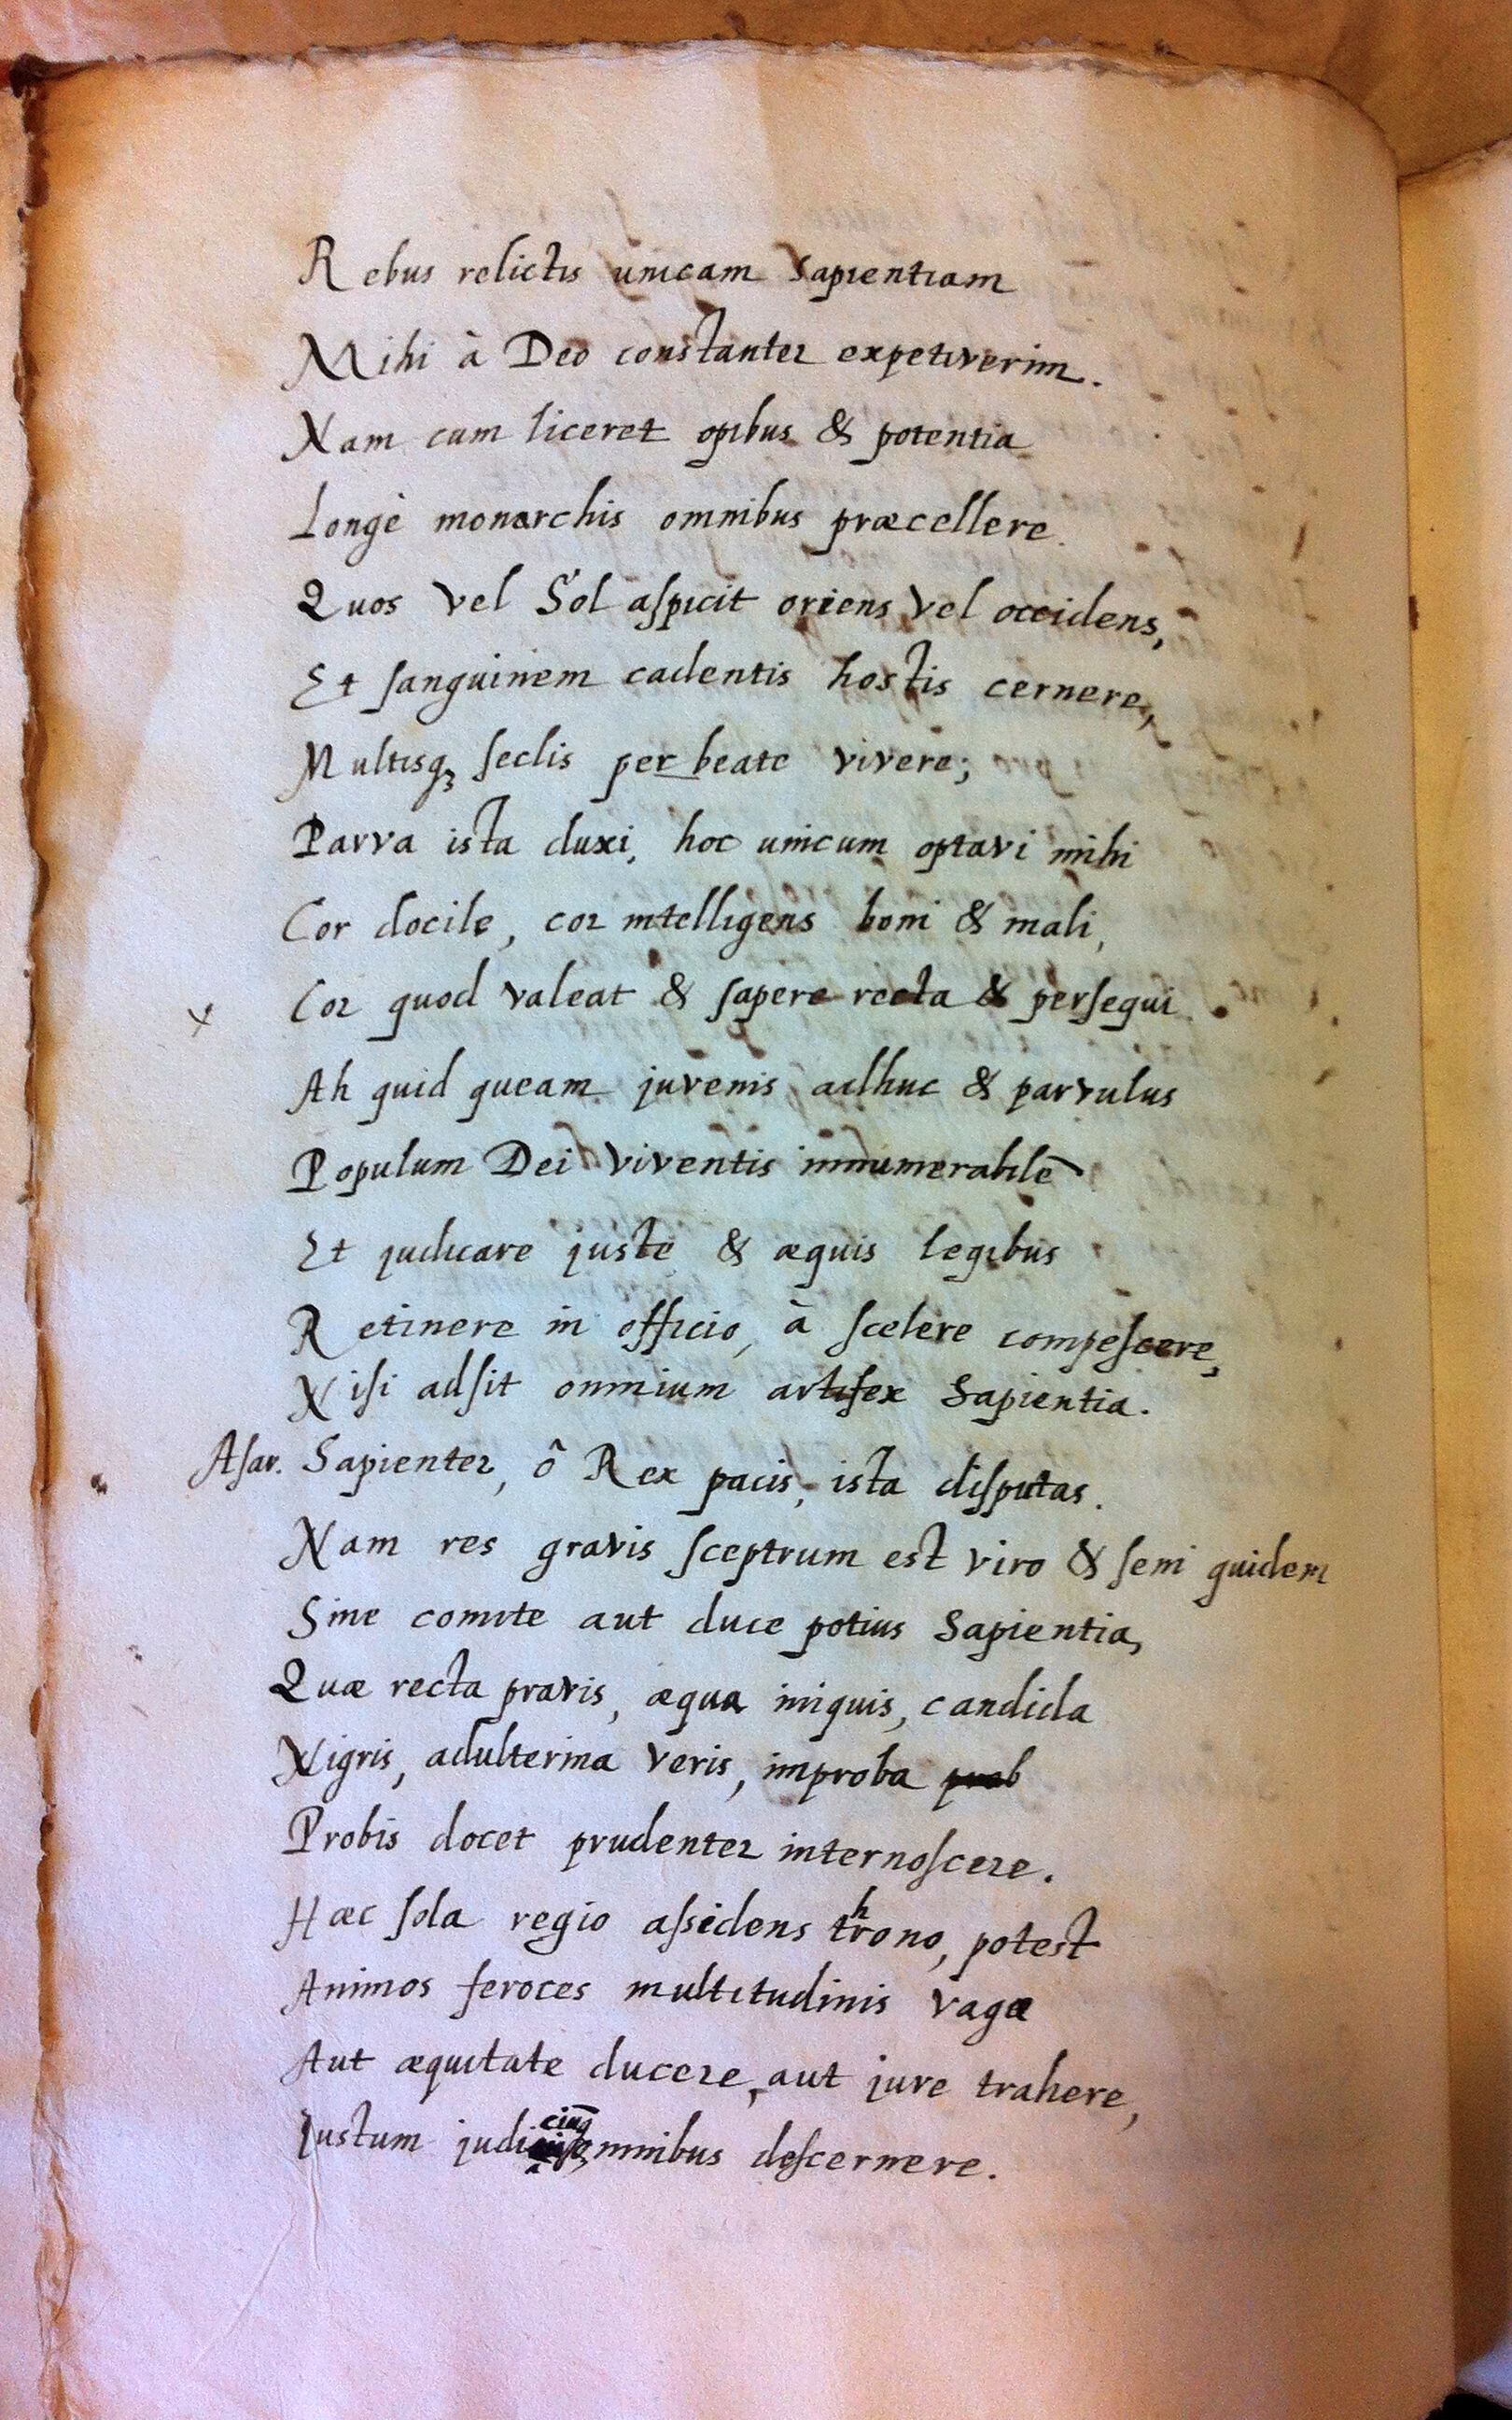 Rebus relictis unicam Sapientiam
Mihi à Deo constanter expetiverim.
Nam cum liceret opibus & potentia
Longè monarchis omnibus præcellere.
Quos vel Sol aſpicit oriens vel occidens,
Et ſanguinem cadentis hostis cernere,
Multisqꝫ ſeclis per beate vivere;
Parva ista duxi, hoc unicum optavi mihi
Cor docile, cor intelligens boni & mali,
x Cor quod valeat & ſapere recta & perſequi.
Ah quid queam juvenis adhuc & parvulus
Populum Dei viventis innumerabilē
Et judicare juste & æquis legibus
Retinere in officio, à ſcelere compeſcere,
Niſi adſit omnium artifex Sapientia.
Aſar. Sapienter, ô Rex pacis, ista diſputas.
Nam res gravis ſceptrum est viro & ſeni quidem
Sine comite aut duce potius Sapientia,
Quæ recta pravis, æqua iniquis, candida
Nigris, adulterina veris, improba prob
Probis docet prudenter internoſcere.
Hæc ſola regio aſsidens throno, potest
Animos feroces multitudinis vagæ
Aut æquitate ducere, aut jure trahere,
Iustum judi omnibus deſcernere.